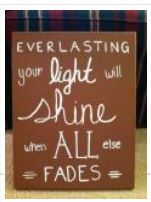 EVERLASTING
your light will
shine
when ALL else
FADES